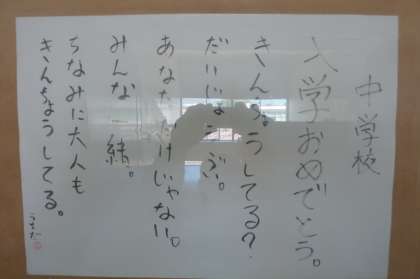 中学校
入学おめでとう。
きんちょうしてる？
だいじょうぶ。
あなただけじゃない。
みんな一緒。
ちなみに大人も
きんちょうしてる。